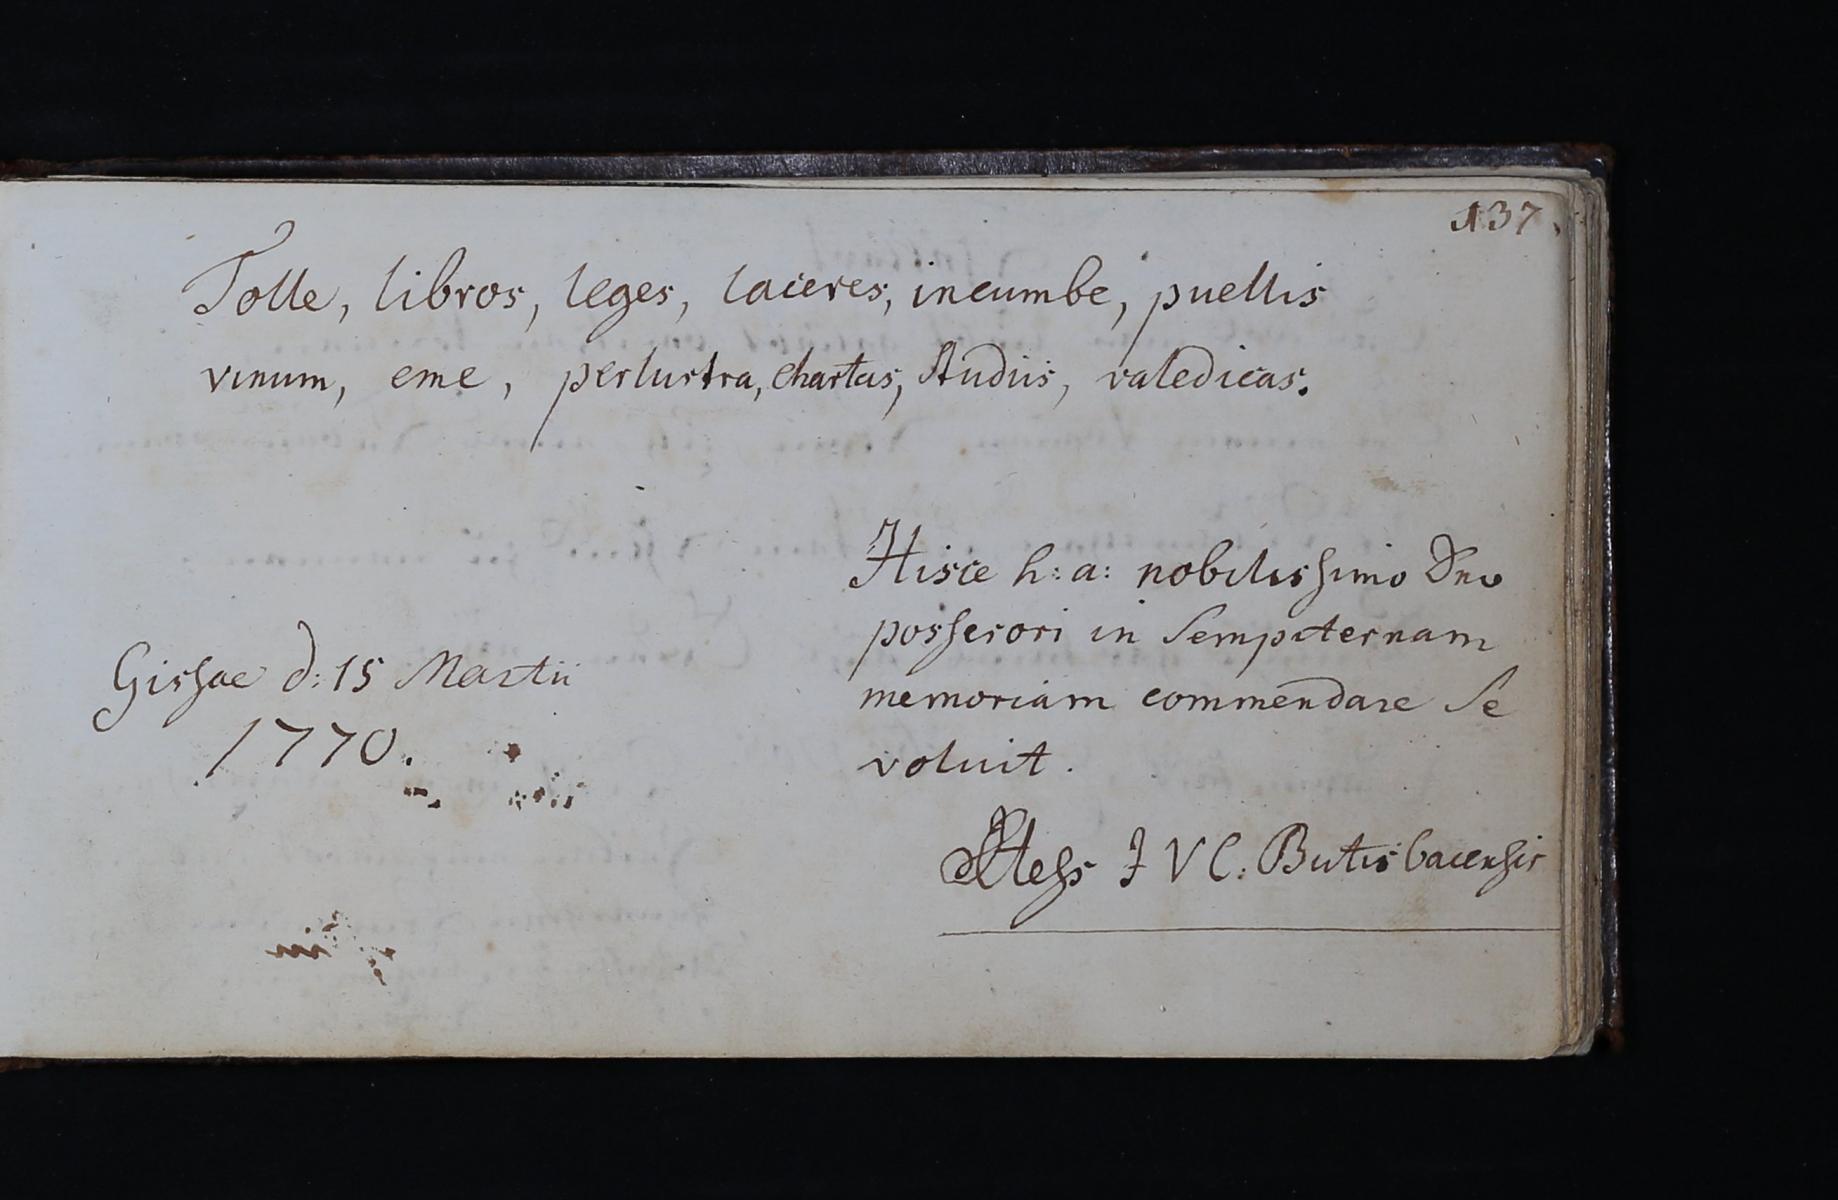 137.
Tolle, libros, leges, laceres, incumbe, puellis
vinum, eme, perlustra, chartas, Studiis, valedicas.
Hisce h: a: nobilissimo Dno
possessori in Sempiternam
memoriam commendare Se
voluit.
Gissae d: 15 Martii
1770.
Hess J V C: Butisbacensis